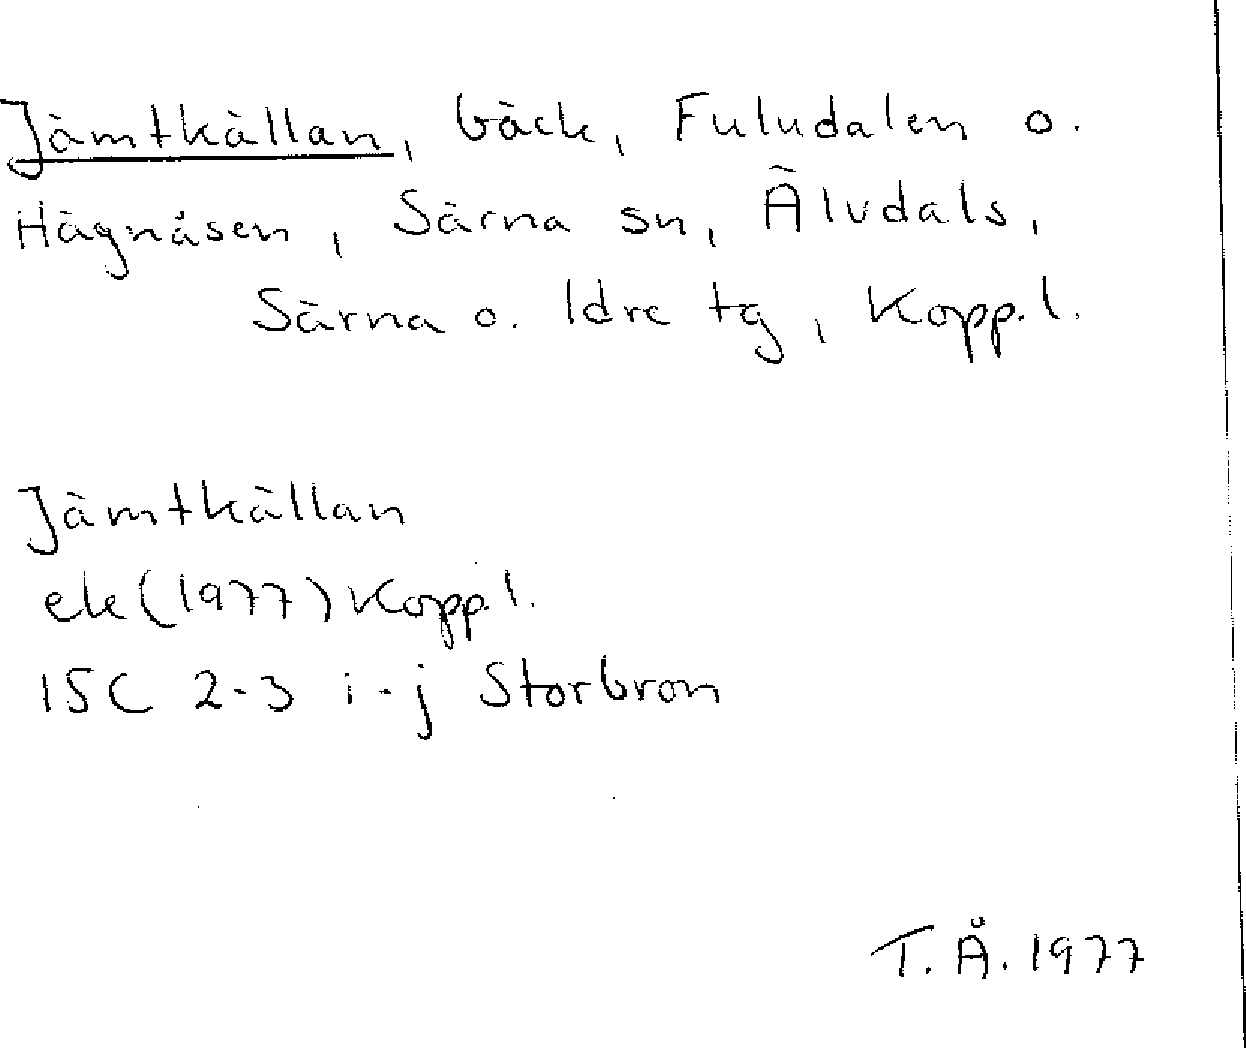 Jämtkällan, bäck, Fuludalen o.
Hägnåsen, Särna sn, Älvdals,
Särna o. Idre tg, Kopp.l.
Jämtkällan
ek (1977) Kopp.l.
15C 2-3 i-j Storbron
T. Å. 1977